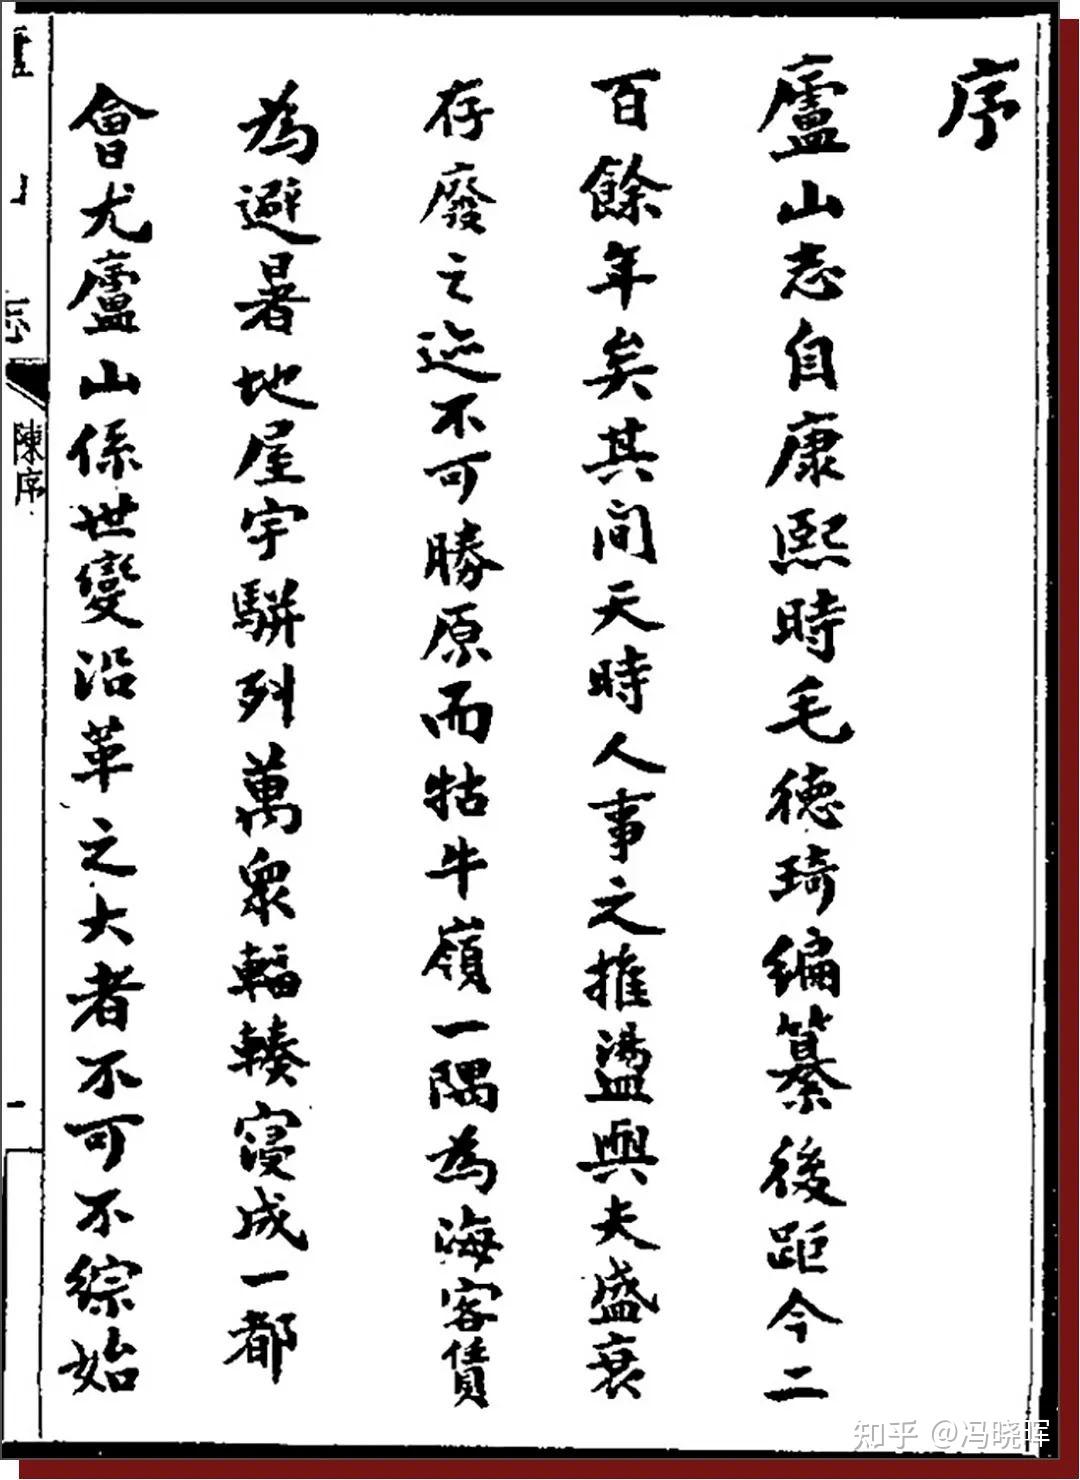 序
廬山志自康熙時毛徳琦編纂後距今二
百餘年矣其間天時人事之推盪與夫盛衰
存廢之迹不可勝原而牯牛嶺一隅為海客賃
為避暑地屋宇駢列萬眾輻輳寖成一都
會尤廬山係世變沿革之大者不可不綜始
陳序
一
知乎 @冯晓晖